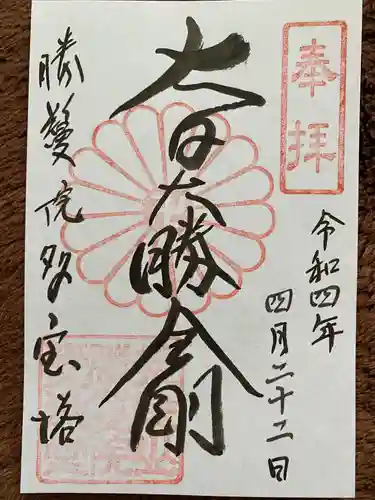 奉拝
令和四年
四月二十二日
大日大勝金剛
勝鬘院多宝塔